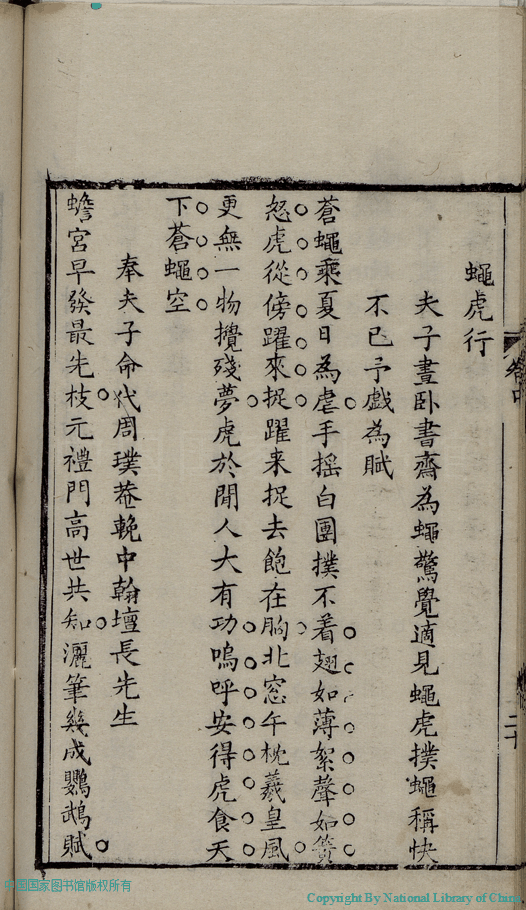 蠅虎行
夫子晝臥書齋為蠅驚覺適見蠅虎撲蠅稱快
不已予戲為賦
蒼蠅乘夏日為虐手搖白團撲不着翅如薄絮聲如簧
怒虎從傍躍來捉躍来捉去飽在胸北窓午枕羲皇風
更無一物攪殘夢虎於閒人大有功嗚呼安得虎食天
下蒼蠅空
奉夫子命代周璞菴輓中翰壇長先生
蟾宮早發最先枝元禮門高世共知灑筆幾成鸚鵡賦
卷中
二十
中国国家图书馆版权所有
Copyright By National Library of China